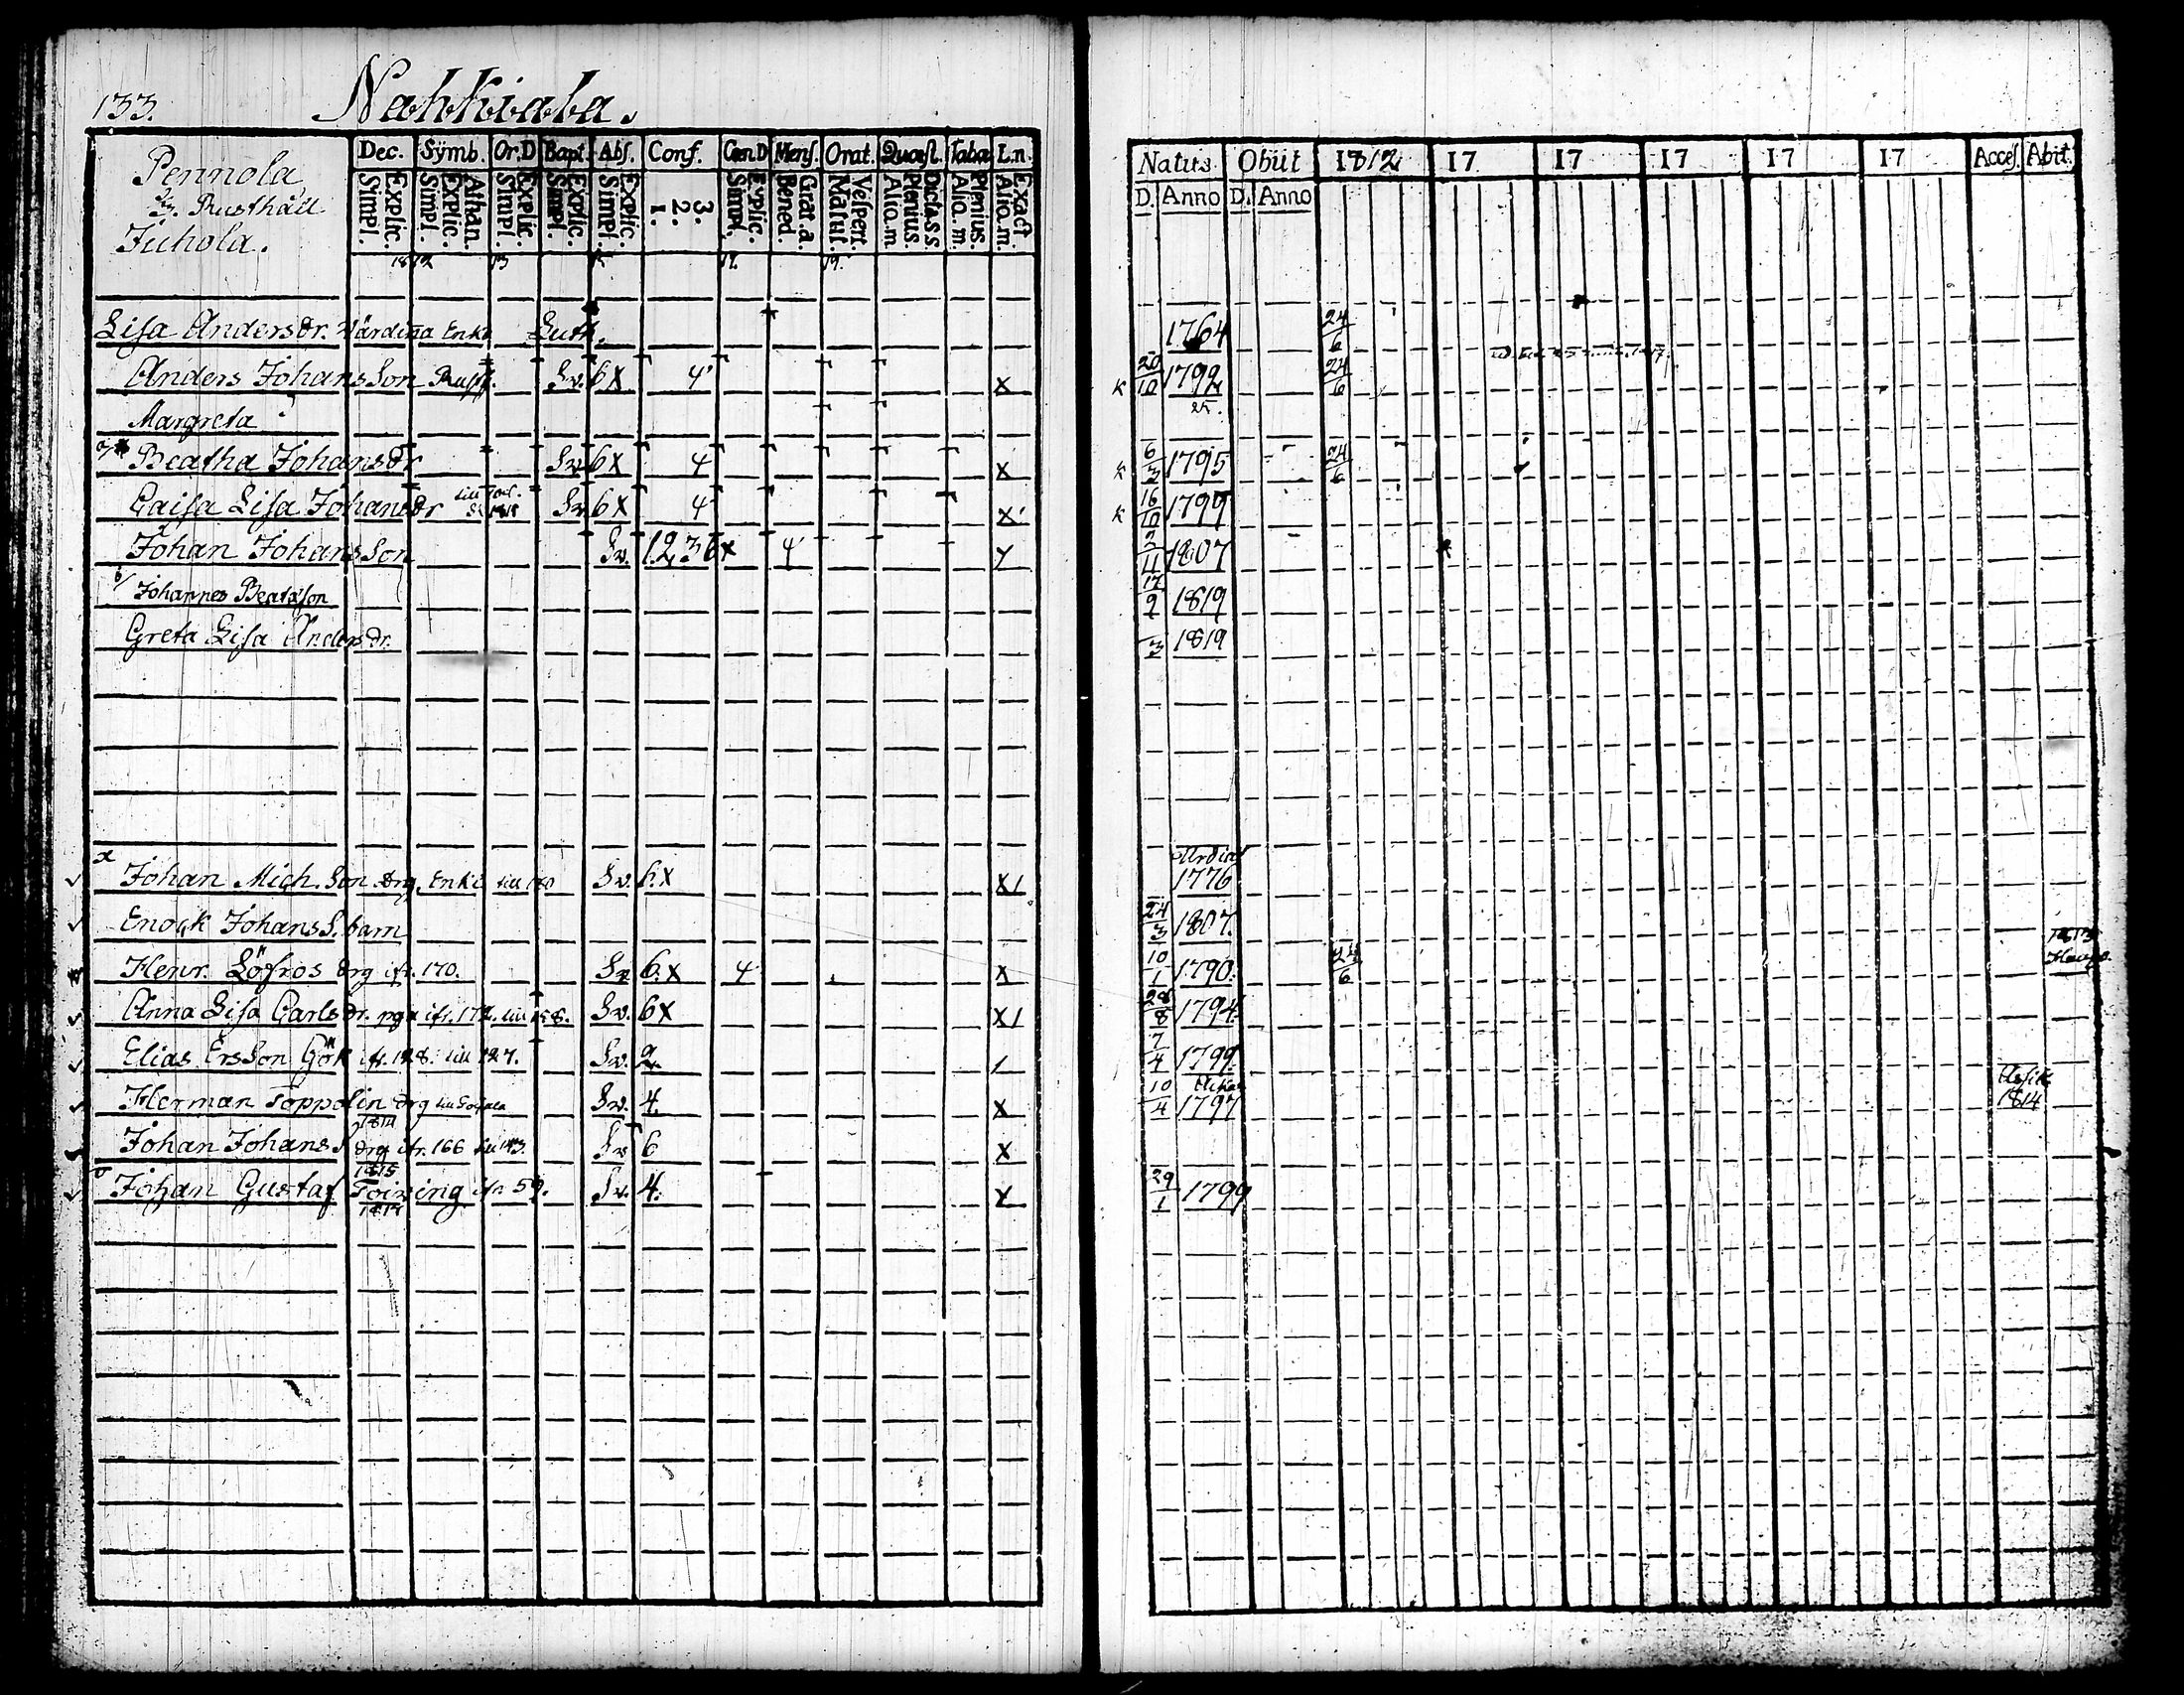 133. Nahkiala.
Pennola
Rusthåll
Juhola.
Dec. Symb. Or.D Bapt. Abs. Conf. Cœn.D Mens. Orat. Quæst. Taba L.n.
Explic. Simpl. Athan. Explic. Simpl. Explic. Simpl. Explic. Simpl. Explic. Simpl. 3. 2. 1. Explic. Simpl. Grat.a. Bened. Vespert. Matut. Dicta.s.s Plenius. Aliq.m. Plenius. Aliq.m. Exact. Aliq.m.
Natus Obiit 1812 17 17 17 17 17 Acces. Abit.
D. Anno D. Anno
1812 13 15 17. 19.
Lisa Andersdr. Värdina Enka 1764 24/6
Anders Johans Son Rusth. Sv. 6 X 4 x k 20/10 1792 24/6
Margreta 25.
Beatha Johansdr Sv 6 X 4 x k 6/3 1795 24/6
Caisa Lisa Johansdr Sv 6 X 4 x k 16/10 1799
Johan Johans Son Sv. 1.2.3 6 x 4 y 2/11 1807
Johannes Beatæson 17/9 1819
Greta Lisa Andersdr. 3 1819
Johan Mich. Son drg. Enkl. till Sv. 6. X X / 1776
Enock Johans S. barn 24/3 1807.
Henr. Löfros drg ifr. 170. Sv 6. X 4 x 10/1 1790. 24/6 1813
Anna Lisa Carlsdr. pga ifr. 172. till Sv. 6 X X / 28/8 1794
Elias Ers Son Gök ifr. 128. till 127. Sv. 2 / 7/4 1799
Herman Toppolin drg Sv. 4. x 10/4 1797 1814
1814
Johan Johans S drg ifr. 166 Sv 6 x
1815
Johan Gustaf ifr 59. Sv. 4. x 29/1 1799